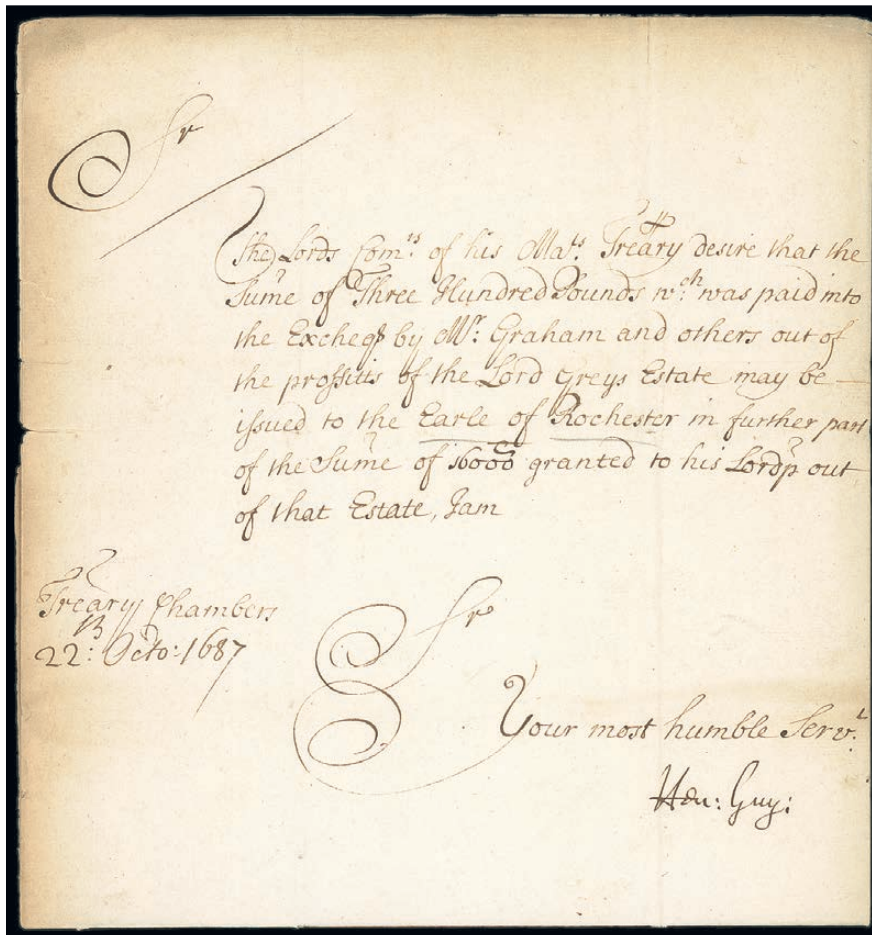 Sr
The Lords Comrs. of his Mats. Treãry desire that the
Sum̃e of Three Hundred Pounds wch. was paid into
the Excheqr by Mr. Graham and others out of
the proffitts of the Lord Greys Estate may be —
issued to the Earle of Rochester in further part
of the Sum̃e of 16000 granted to his Lordp out
of that Estate, I am
Treãry Chambers
22: Octo: 1687
Sr
Your most humble Servt.
Hen: Guy: